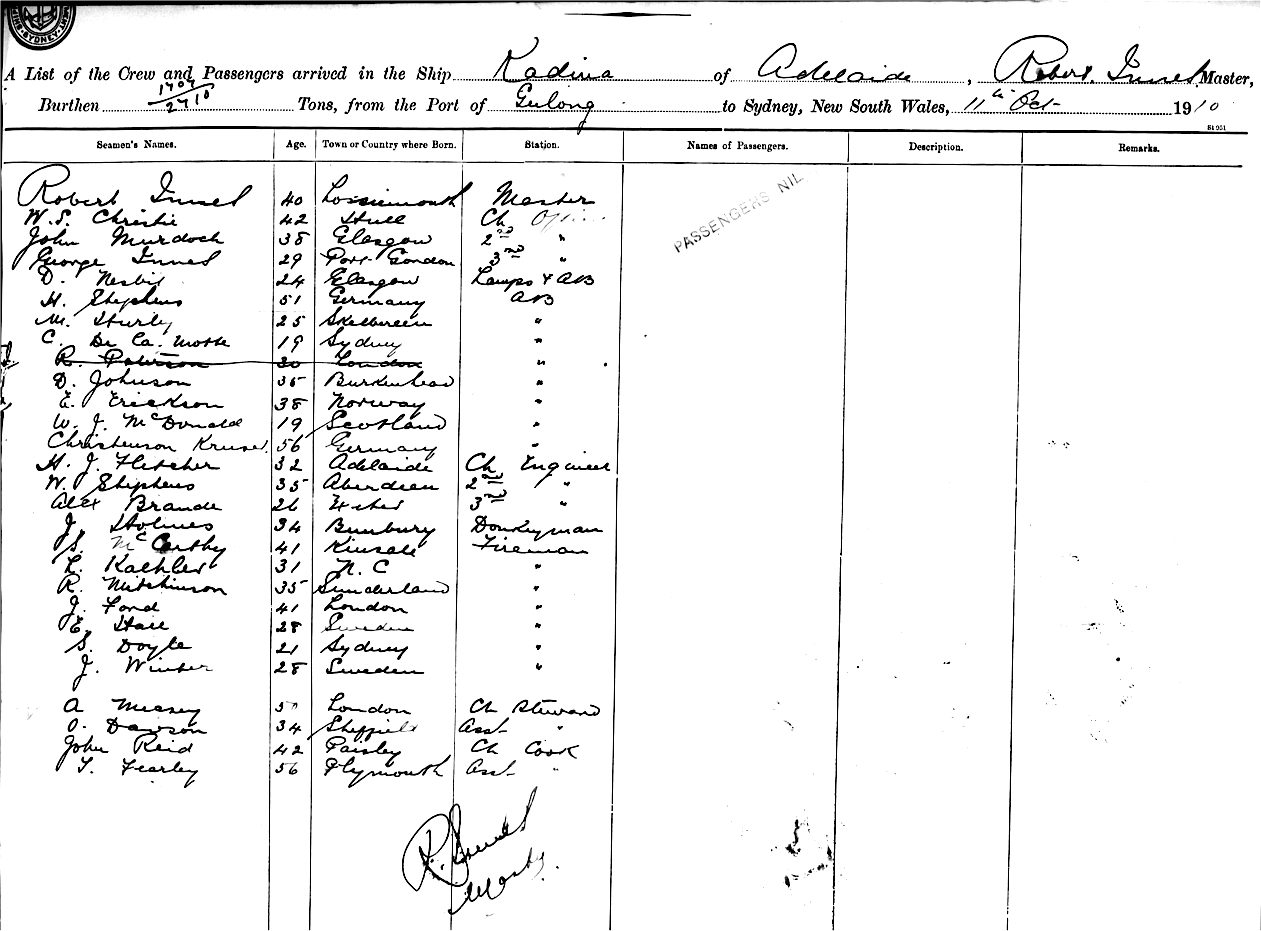 A List of the Crew and Passengers arrived in the Ship Kadina of Adelaide, Robert Innes Master,
Burthen 1707/2710 Tons, from the Port of Geelong to Sydney, New South Wales, 11th Oct 1910
St 951
Seamen's Names. Age. Town or Country where Born. Station. Names of Passengers. Description. Remarks.
PASSENGERS NIL
Robert Innes 40 Lossiemouth Master
W. S. Christie 42 Hull Ch
John Murdoch 38 Glasgow 2nd "
George Innes 29 Port Gordon 3rd "
D. Nesbit 24 Glasgow Lamps & AB
H. Stephens 51 Germany AB
M. Hurly 25 Skelbereen "
C. De La. Motte 19 Sydney "
R. Paterson 30 London "
D. Johnson 35 Burkenhead "
E. Erickson 38 Norway "
W. J. McDonald 19 Scotland "
Christenson Kruse 56 Germany "
H. J. Fletcher 32 Adelaide Ch Engineer
W. Stephens 35 Aberdeen 2nd "
Alex Brande 26 3rd "
J. Holmes 34 Bunbury Donkeyman
S. McCarthy 41 Kinsale Fireman
L. Kaehler 31 N. C "
R. Mitchinson 35 Sunderland "
J. Ford 41 London "
E. Hall 28 Sweden "
S. Doyle 21 Sydney "
J. Winter 28 Sweden "
A London Ch Steward
O. Dawson 34 Sheffield Asst "
John Reid 42 Paisley Ch Cook
T. Fearley 56 Plymouth Asst "
R. Innes
Master